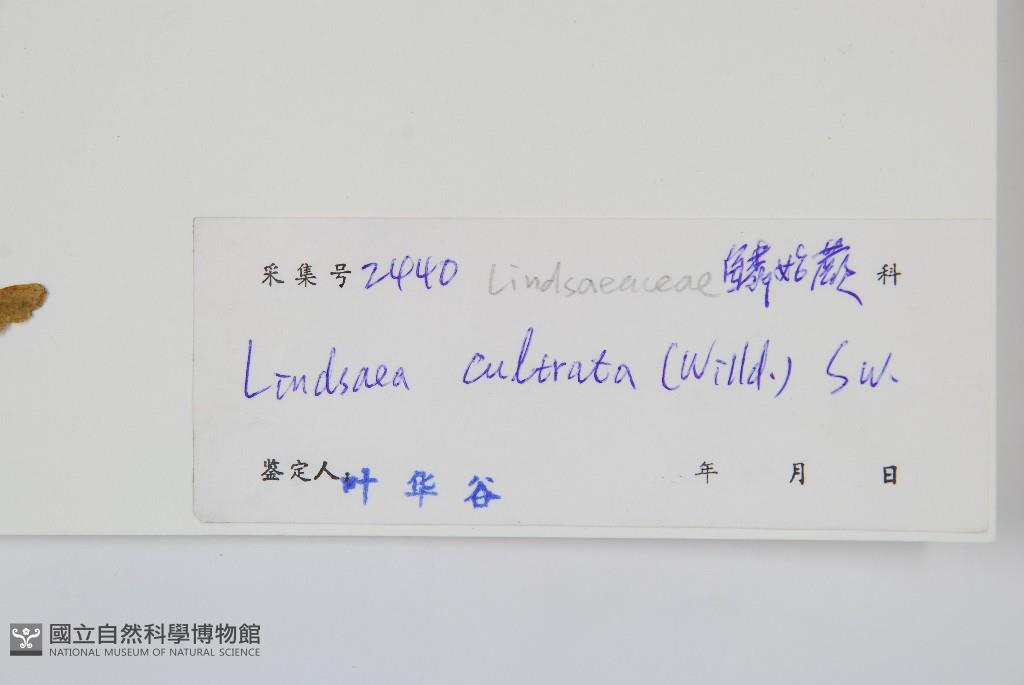 采集号 2440 Lindsaeaceae 鳞始蕨 科
Lindsaea cultrata (Willd.) Sw.
鉴定人: 叶华谷 年 月 日
國立自然科學博物館
NATIONAL MUSEUM OF NATURAL SCIENCE